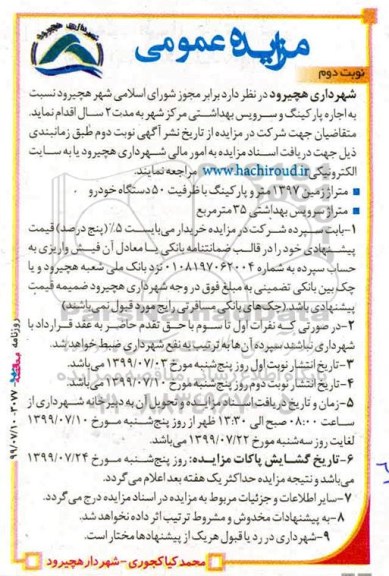 مزایده عمومی
نوبت دوم
شهرداری هچیرود در نظر دارد برابر مجوز شورای اسلامی شهر هچیرود نسبت
به اجاره پارکینگ و سرویس بهداشتی مرکز شهر به مدت ۲ سال اقدام نماید.
متقاضیان جهت شرکت در مزایده از تاریخ نشر آگهی نوبت دوم طبق زمانبندی
ذیل جهت دریافت اسناد مزایده به امور مالی شهرداری هچیرود یا به سایت
الکترونیکی www.hachiroud.ir مراجعه نمایند.
متراژ زمین ۱۳۹۷ متر و پارکینگ با ظرفیت ۵۰ دستگاه خودرو
متراژ سرویس بهداشتی ۳۵ مترمربع
۱-بابت سپرده شرکت در مزایده خریدار می‌بایست ۵٪ (پنج درصد) قیمت
پیشنهادی خود را در قالب ضمانتنامه بانکی یا معادل آن فیش واریزی به
حساب سپرده به شماره ۰۱۰۸۱۹۷۰۶۲۰۰۴ نزد بانک ملی شعبه هچیرود و یا
چک بین بانکی تضمینی به مبلغ فوق در وجه شهرداری هچیرود ضمیمه قیمت
پیشنهادی باشد. (چک‌های بانکی مسافرتی رایج مورد قبول نمی‌باشند)
۲-در صورتی که نفرات اول تا سوم با حق تقدم حاضر به عقد قرارداد با
شهرداری نباشد سپرده آن‌ها به ترتیب به نفع شهرداری ضبط خواهد شد.
۳-تاریخ انتشار نوبت اول روز پنج‌شنبه مورخ ۱۳۹۹/۰۷/۰۳ می‌باشد.
۴-تاریخ انتشار نوبت دوم روز پنج‌شنبه مورخ ۱۳۹۹/۰۷/۱۰ می‌باشد.
۵-زمان و تاریخ دریافت اسناد مزایده و تحویل آن به دبیرخانه شهرداری از
ساعت ۰۸:۰۰ صبح الی ۱۳:۳۰ ظهر از روز پنج‌شنبه مورخ ۱۳۹۹/۰۷/۱۰
لغایت روز سه‌شنبه مورخ ۱۳۹۹/۰۷/۲۲ می‌باشد.
۶-تاریخ گشایش پاکات مزایده: روز پنج‌شنبه مورخ ۱۳۹۹/۰۷/۲۴
می‌باشد و نتیجه مزایده حداکثر یک هفته بعد اعلام می‌گردد.
۷-سایر اطلاعات و جزئیات مربوط به مزایده در اسناد مزایده درج می‌گردد.
۸-به پیشنهادات مخدوش و مشروط ترتیب اثر داده نخواهد شد.
۹-شهرداری در رد یا قبول هر یک از پیشنهادها مختار است.
محمد کیاکجوری - شهردار هچیرود
روزنامه
۹۹/۰۷/۱۰-۳۰۷۷